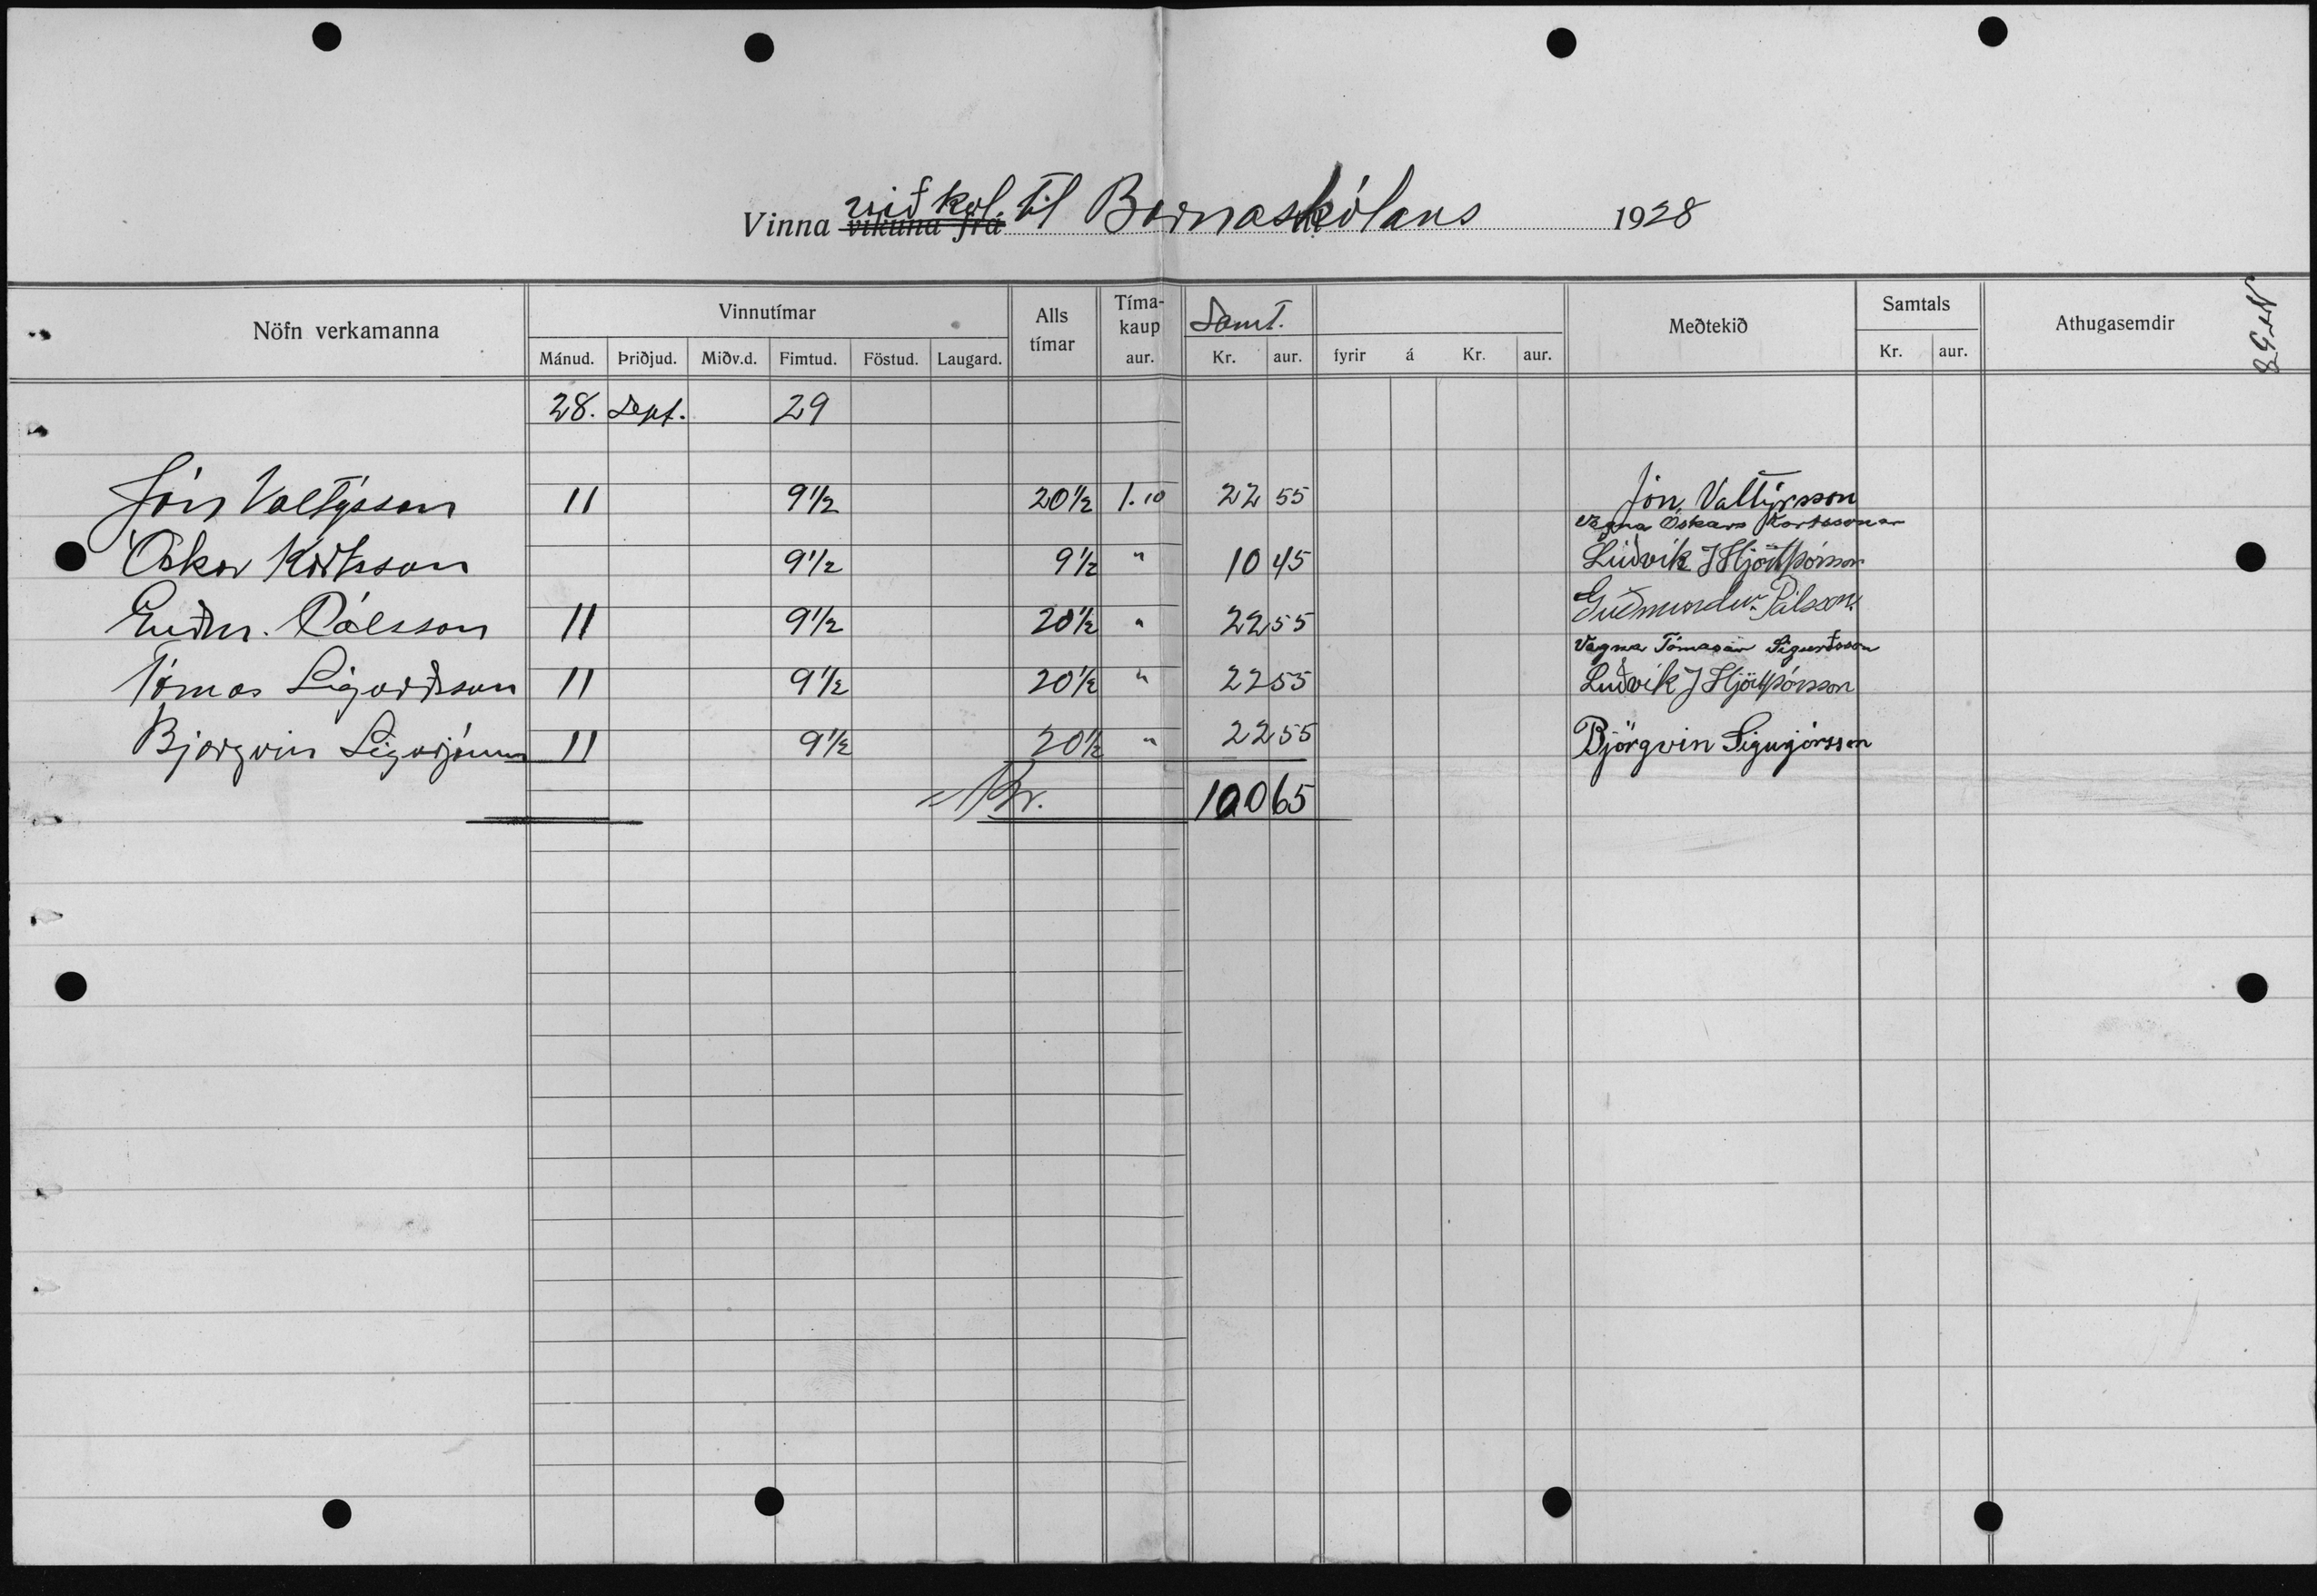 Vinna vikuna frá við kol til Barnaskólans 1928
Nr 58
Nöfn verkamanna Vinnutímar Alls tímar Tíma-kaup aur. Samt. Meðtekið Samtals Athugasemdir
Mánud. Þriðjud. Miðv.d. Fimtud. Föstud. Laugard. Kr. aur. fyrir á Kr. aur. Kr. aur.
28. Sept. 29
Jón Valtýsson 11 9½ 20½ 1.10 22 55 Jón Valtýrsson
Vegna Óskars Kortssonar
Óskar Kortsson 9½ 9½ " 10 45 Lúðvík J Hjörtþórsson
Guðm. Pálsson 11 9½ 20½ " 22 55 Guðmundur Pálsson
Vegna Tómasar Sigurðsson
Tómas Sigurðsson 11 9½ 20½ " 22 55 Luðvík J Hjörtþórsson
Björgvin Sigurjónss 11 9½ 20½ " 22 55 Björgvin Sigurjónsson
Kr. 100 65